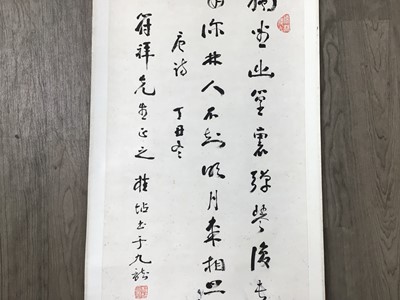 獨坐幽篁裏彈琴復長
嘯深林人不知明月來相照
唐詩 丁丑冬
符祥先生正之 桂坫书于九龍